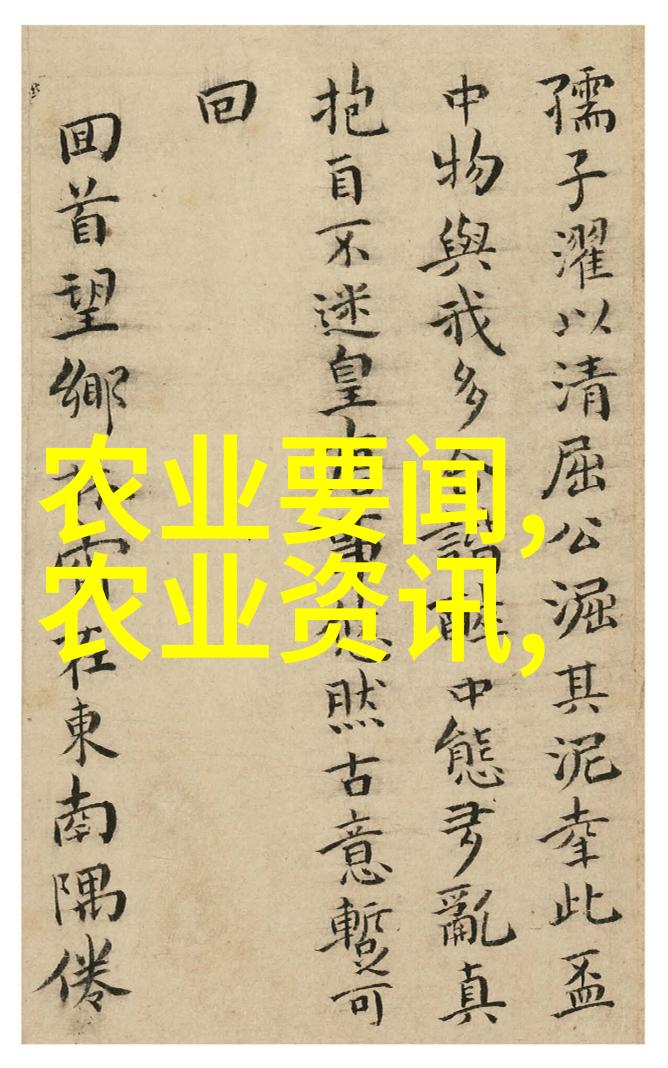 孺子濯以清屈公淈其泥幸此盃
中物與我多諧醉中態亂真
抱自不迷皇然古意暫可
回
回首望鄉在東南隅倦
农业要闻,
农业资讯,